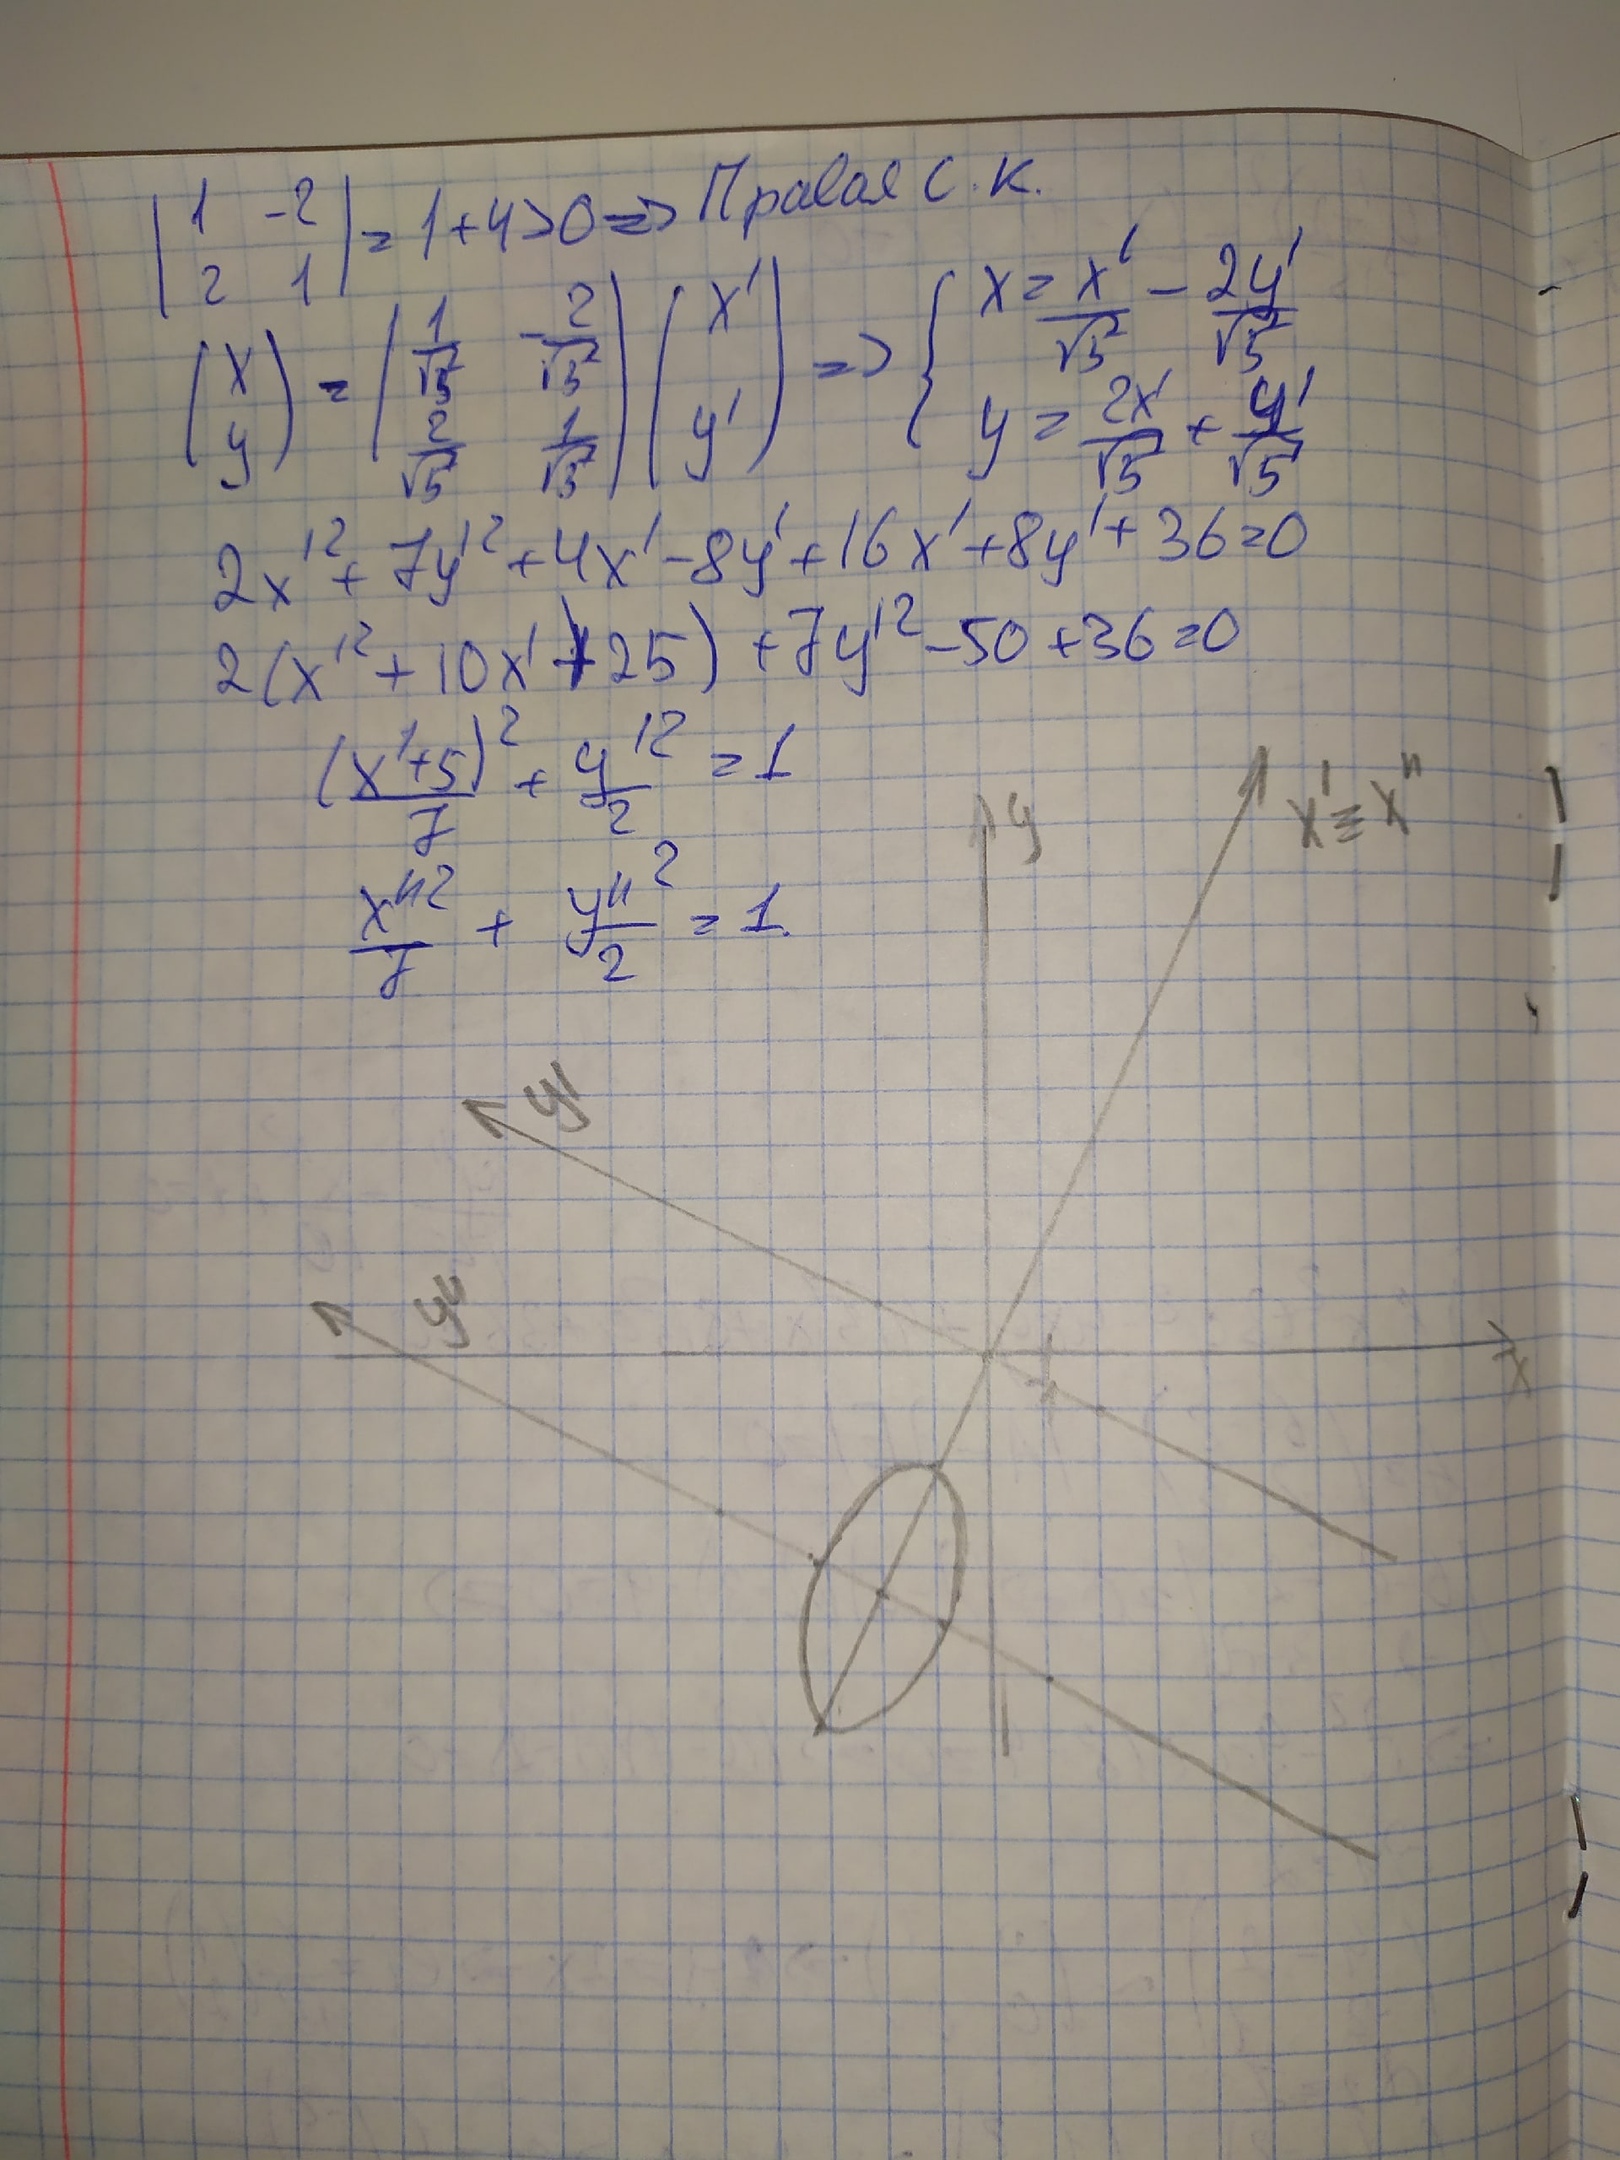 | 1 -2 |
| 2 1 | = 1+4>0 => Правая с.к.
(x y) = (1/√5 -2/√5 2/√5 1/√5) (x' y') => { x = x'/√5 - 2y'/√5
y = 2x'/√5 + y'/√5
2x'² + 7y'² + 4x' - 8y' + 16x' + 8y' + 36 = 0
2(x'² + 10x' + 25) + 7y'² - 50 + 36 = 0
(x'+5)²/7 + y'²/2 = 1
x''²/7 + y''²/2 = 1.
y
x' ≡ x''
y'
y''
1
x